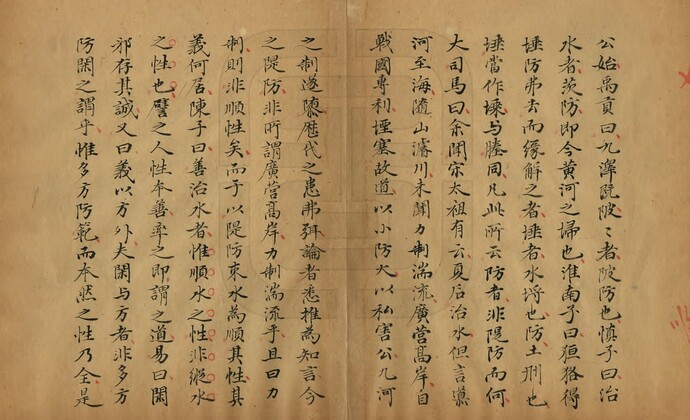 公始禹貢曰九澤既陂〻者陂防也慎子曰治
水者茨防即今黃河之埽也淮南子曰狟狢得
埵防弗去而緣解之者埵者水埒也防土刑也
埵當作堘與塍同凡此所云防者非隄防而何
大司馬曰余聞宋太祖有云夏后治水但言導
河至海隨山濬川未聞力制湍流廣營高岸自
戰國專利堙塞故道以小防大以私害公九河
之制遂隳歷代之患弗弭論者悉推為知言今
之隄防非所謂廣營高岸力制湍流乎且曰力
制則非順性矣而子以隄防束水為順其性其
義何居陳子曰善治水者惟順水之性非縱水
之性也譬之人性本善率之即謂之道易曰閑
邪存其誠又曰義以方外夫閑与方者非多方
防閑之謂乎惟多方防範而本然之性乃全是